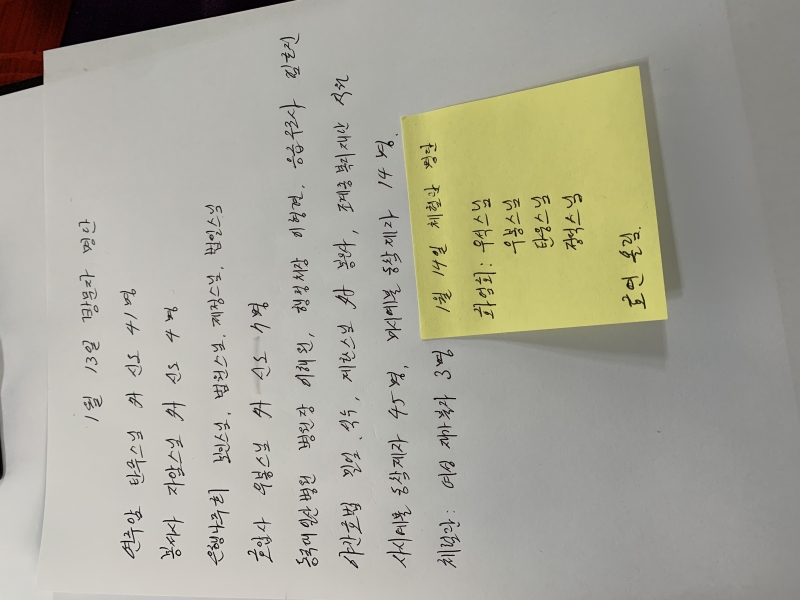 1월 13일 방문자 명단
연주암 탄무스님 外 신도 41명
봉선사 자암스님 外 신도 4명
은행나무회 보인스님, 법천스님, 제정스님, 법인스님
호압사 우봉스님 外 신도 9명
동국대일산병원 병원장 이해원, 행정처장 이형련, 응급구조사
야간호법 진일, 석두, 제현스님 外 봉화, 조계종복지재단 직원
사시예불 동참제자 45명, 저녁예불 동참제자 14명.
체험관: 여성 재가불자 3명
1월 14일 체험관 명단
화엄회: 우석스님
우봉스님
탄웅스님
정덕스님
효연 올림.